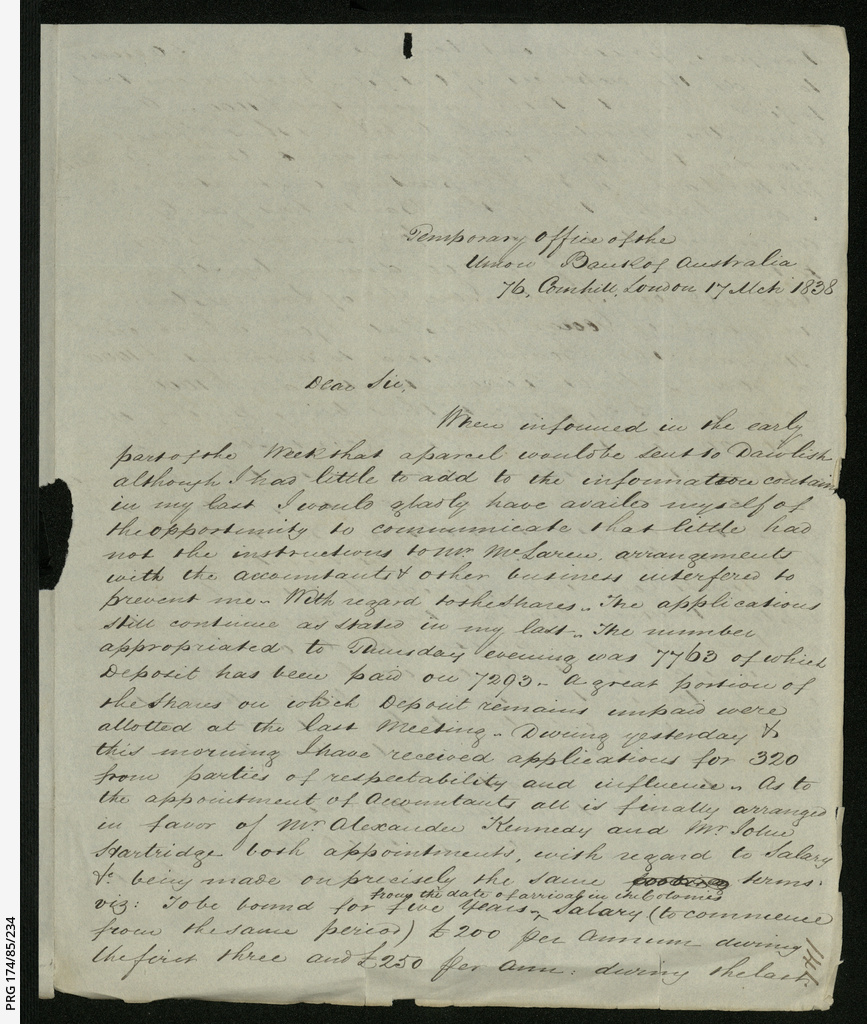 Temporary Office of the
Union Bank of Australia
76, Cornhill, London 17 Mch 1838
Dear Sir,
When informed in the early
part of the Week that a parcel would be sent to Dawlish
although I had little to add to the information contain
in my last I would gladly have availed myself of
the opportunity to communicate that little had
not the instructions to Mr. McLaren, arrangements
with the accountants & other business interfered to
prevent me. With regard to the Shares. The applications
still continue as stated in my last. The number
appropriated to Thursday evening was 7763 of which
Deposit has been paid on 7293. A great portion of
the Shares on which Deposit remains unpaid were
allotted at the last Meeting. During yesterday &
this morning I have received applications for 320
from parties of respectability and influence. As to
the appointment of Accountants all is finally arranged
in favor of Mr. Alexander Kennedy and Mr. John
Hartridge both appointments, with regard to Salary
&c. being made on precisely the same terms.
from the date of arrival in the Colonies
viz: To be bound for five Years, Salary (to commence
from the same period) £200 per Annum during
the first three and £250 per Ann: during the last.
141
PRG 174/85/234